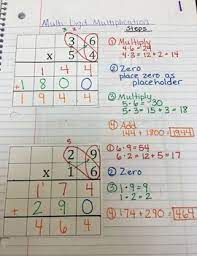 1
Multi-Digit Multiplication
Steps
2
3 6
x 5 4
1 4 4
+ 1 8 0 0
1 9 4 4
① Multiply
4·6=24
4·3=12+2=14
② Zero
place zero as
placeholder
③ Multiply
5·6=30
5·3=15+3=18
④ Add
144+1800=1944
5
2 9
x 1 6
1 7 4
+ 2 9 0
4 6 4
① 6·9=54
6·2=12+5=17
② Zero
③ 1·9=9
1·2=2
④ 174+290=464